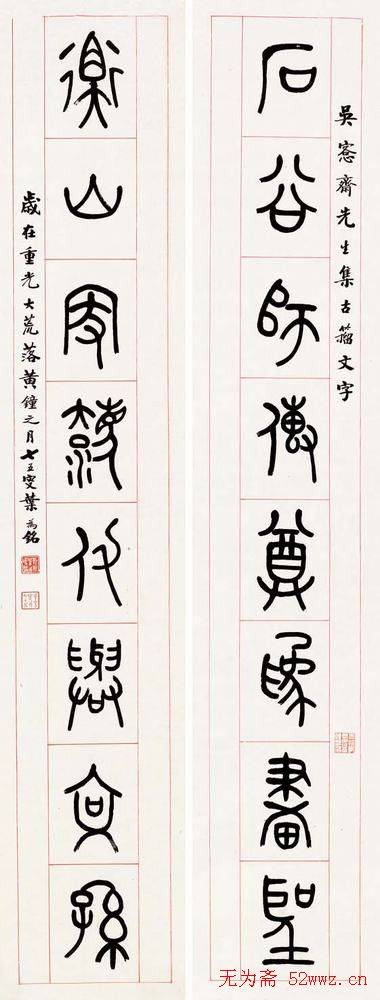 吳愙齋先生集古籀文字
石谷師傳尊為畫聖
衡山付與孫
歲在重光大荒落黃鐘之月七五叟葉為銘
无为斋 52wwz.cn